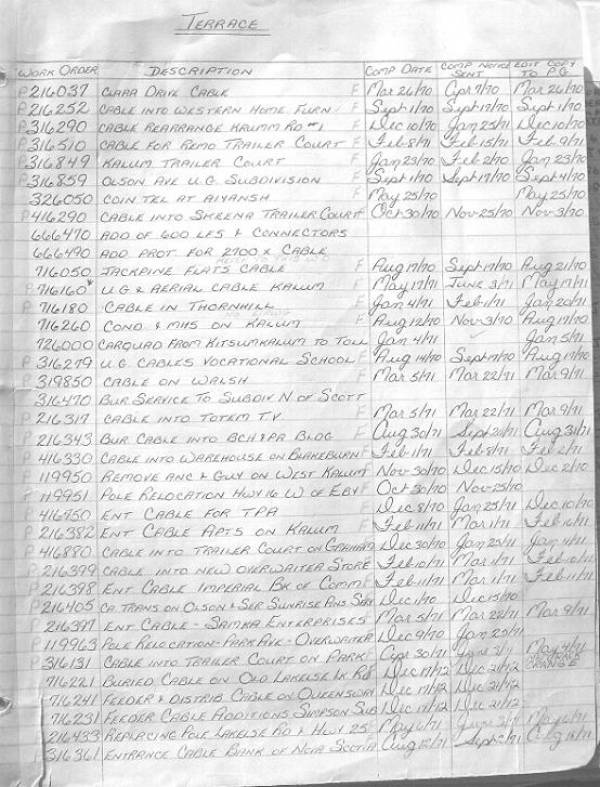 TERRACE
WORK ORDER DESCRIPTION COMP DATE COMP NOTICE SENT EDIT COPY TO P.G.
P 216037 CLARA DRIVE CABLE F Mar 26/70 Apr 7/70 Mar 26/70
P 216252 CABLE INTO WESTERN HOME FURN F Sept 1/70 Sept 17/70 Sept 1/70
P 316290 CABLE REARRANGE KALUM RD #1 F Dec 10/70 Jan 25/71 Dec 10/70
P 316510 CABLE FOR REMO TRAILER COURT F Feb 8/71 Feb 15/71 Feb 9/71
P 316849 KALUM TRAILER COURT F Jan 23/70 Feb 2/70 Jan 23/70
P 316859 OLSON AVE U.G. SUBDIVISION F Sept 1/70 Sept 17/70 Sept 4/70
326050 COIN TEL AT AIYANSH F May 25/70 May 25/70
P 416290 CABLE INTO SKEENA TRAILER COURT Oct 30/70 Nov 25/70 Nov 3/70
666470 ADD OF 600 LES & CONNECTORS
666490 ADD PROT. FOR 2700 X CABLE
716050 JACKPINE FLATS CABLE F Aug 17/70 Sept 17/70 Aug 21/70
P 716160 U.G & AERIAL CABLE KALUM F May 17/71 JUNE 3/71 May 17/71
P 716180 CABLE IN THORNHILL F Jan 4/71 Feb 1/71 Jan 20/71
716260 COND & MHS ON KALUM F Aug 12/70 Nov 3/70 Aug 17/70
726000 CARQUAD FROM KITSUMKALUM TO TOLL Jan 4/71 Jan 5/71
P 316279 U.G. CABLES VOCATIONAL SCHOOL F Aug 14/70 Sept 17/70 Aug 17/70
P 319850 CABLE ON WALSH F Mar 5/71 Mar 22/71 Mar 9/71
316470 BUR SERVICE TO SUBDIV N OF SCOTT
P 216317 CABLE INTO TOTEM T.V. F Mar 5/71 Mar 22/71 Mar 9/71
P 216343 BUR CABLE INTO BCH&PA BLDG F Aug 30/71 Aug 31/71
P 416330 CABLE INTO WAREHOUSE ON BLAKEBURN F Feb 1/71 Feb 8/71 Feb 2/71
P 119950 REMOVE ANC & GUY ON WEST KALUM Nov 30/70 Dec 15/70 Dec 2/70
P 119951 POLE RELOCATION HWY 16 W OF EBY F Oct 30/70 Nov 25/70
P 416750 ENT CABLE FOR TPA F Dec 8/70 Jan 25/71 Dec 10/70
P 216382 ENT CABLE APTS ON KALUM F Feb 11/71 Mar 1/71 Feb 16/71
P 416880 CABLE INTO TRAILER COURT ON GRAHAM Dec 30/70 Jan 25/71 Jan 4/71
P 216399 CABLE INTO NEW OVERWAITEA STORE Feb 10/71 Mar 1/71 Feb 10/71
P 216398 ENT CABLE IMPERIAL BK OF COMM F Feb 11/71 Mar 1/71 Feb 11/71
P 216405 CA. TRANS ON OLSON & SER SUNRISE Dec 1/70 Dec 15/70
P 216397 ENT CABLE - SAMKA ENTERPRISES Mar 5/71 Mar 22/71 Mar 9/71
P 119963 POLE RELOCATION - PARK AVE - OVERWAITEA Dec 9/70 Jan 25/71
P 316131 CABLE INTO TRAILER COURT ON PARK F Apr 30/71 June 3/71 May 4/71
716221 BURIED CABLE ON OLD LAKELSE LK RD Dec 17/12 Dec 21/12
716241 FEEDER & DISTRIB CABLE ON QUEENSWAY Dec 17/12 Dec 21/12
716231 FEEDER CABLE ADDITIONS SIMPSON SUB Dec 17/12 Dec 21/12
216433 REPLACING POLE LAKELSE RD & HWY 25 F May 6/71 June 3/71 May 6/71
P 316361 ENTRANCE CABLE BANK OF NOVA SCOTIA Aug 18/71